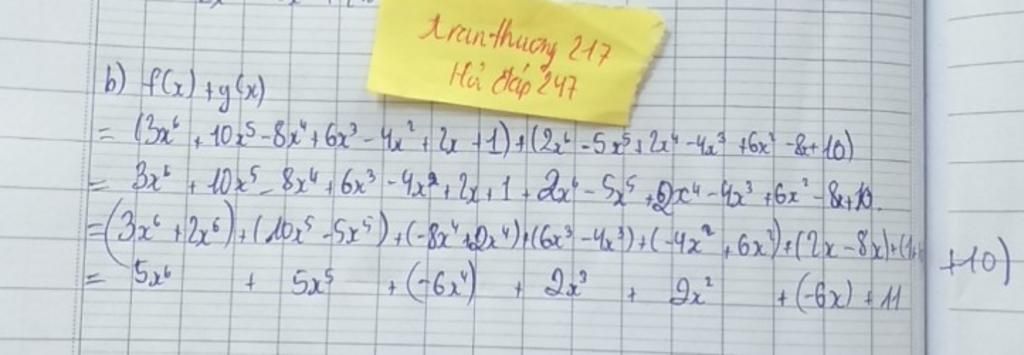 tranthuong 217
Hỏi đáp 247
b) f(x) + g(x)
= (3x⁶ + 10x⁵ - 8x⁴ + 6x³ - 4x² + 2x + 1) + (2x⁶ - 5x⁵ + 2x⁴ - 4x³ + 6x² - 8x + 10)
= 3x⁶ + 10x⁵ - 8x⁴ + 6x³ - 4x² + 2x + 1 + 2x⁶ - 5x⁵ + 2x⁴ - 4x³ + 6x² - 8x + 10.
= (3x⁶ + 2x⁶) + (10x⁵ - 5x⁵) + (-8x⁴ + 2x⁴) + (6x³ - 4x³) + (-4x² + 6x²) + (2x - 8x) + (1 + 10)
= 5x⁶ + 5x⁵ + (-6x⁴) + 2x³ + 2x² + (-6x) + 11